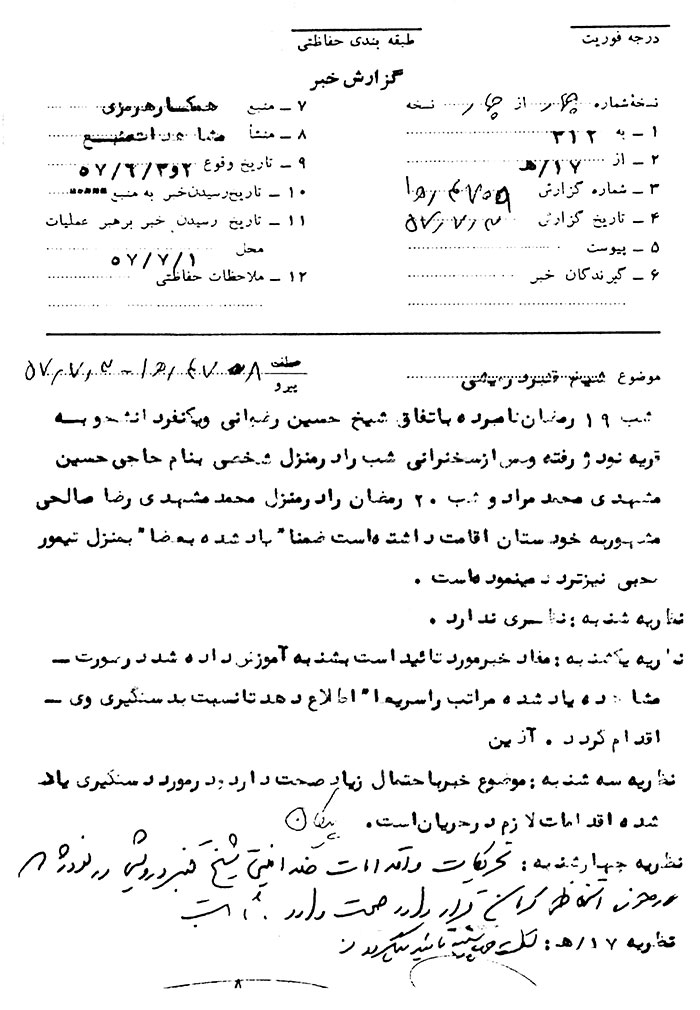 درجه فوریت
طبقه بندی حفاظتی
گزارش خبر
نسخهٔ شماره چهار از چهار نسخه
۱ ـ به ۳۱۲
۲ ـ از ۱۷/هـ
۳ ـ شماره گزارش
۴ ـ تاریخ گزارش
۵ ـ پیوست
۶ ـ گیرندگان خبر
۷ ـ منبع همکار هرمزی
۸ ـ منشأ مشاهدات منبع
۹ ـ تاریخ وقوع ۲و۵۷/۶/۳
۱۰ ـ تاریخ رسیدن خبر به منبع
۱۱ ـ تاریخ رسیدن خبر برهبر عملیات
محل ۵۷/۷/۱
۱۲ ـ ملاحظات حفاظتی
موضوع شیخ قنبر
پیرو
شب ۱۹ رمضان نامبرده باتفاق شیخ حسین رضوانی ویکنفر دانشجو به
قریه نودژ رفته وپس ازسخنرانی شب رادرمنزل شخصی بنام حاجی حسین
مشهدی محمد مراد و شب ۲۰ رمضان رادرمنزل محمد مشهدی رضا صالحی
مشهوربه خودستان اقامت داشته‌است ضمنا" یاد شده بعضا" بمنزل تیمور
محبی نیزتردد مینموده‌است .
نظریه شنبه : نظری ندارد .
نظریه یکشنبه : مفاد خبرمورد تائید است بشنبه آموزش داده شد درصورت ـ
مشاهده یاد شده مراتب راسریعا" اطلاع دهد تانسبت بدستگیری وی ـ
اقدام گردد . آذین
نظریه سه شنبه : موضوع خبرباحتمال زیاد صحت دارد ودرمورد دستگیری یاد
شده اقدامات لازم درجریان‌است . پیکان
نظریه چهارشنبه : تحریکات و اقدامات ضد امنیتی شیخ قنبر درویشی در نودژ
قرار دارد صحت دارد .
نظریه ۱۷/هـ :
۸